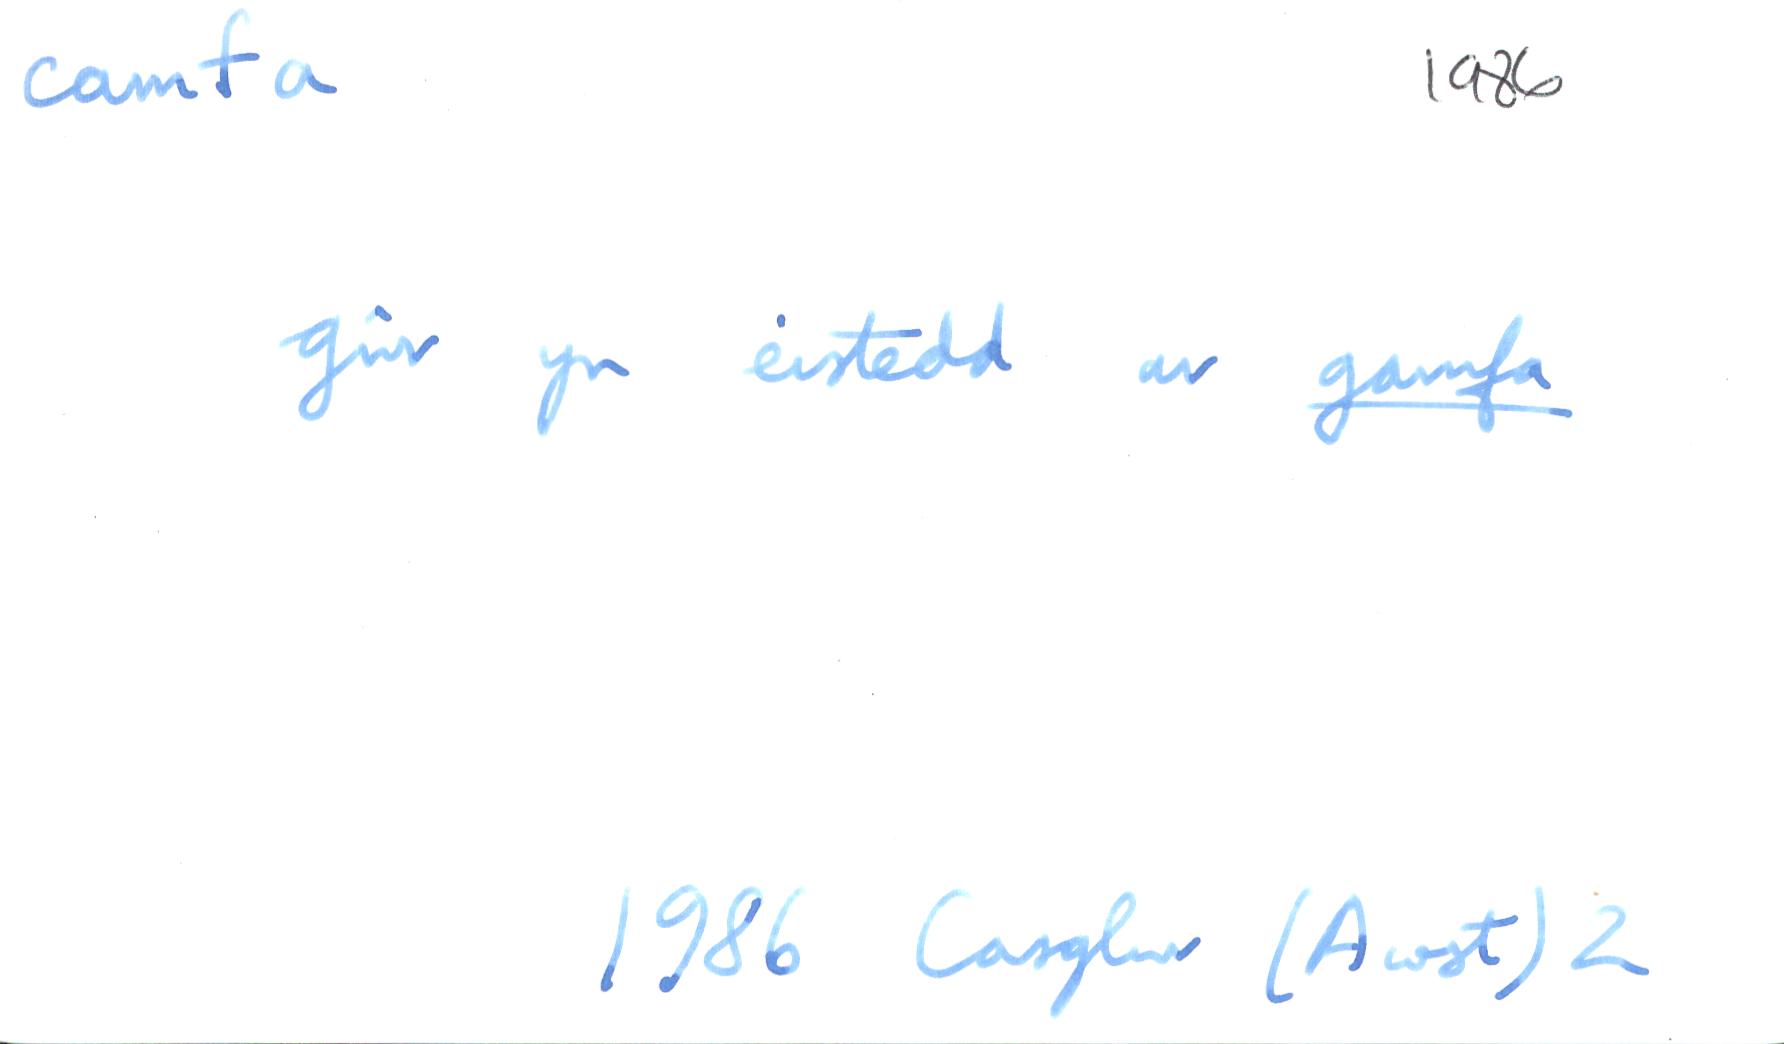 camfa 1986
gŵr yn eistedd ar gamfa
1986 Casglwr (Awst) 2